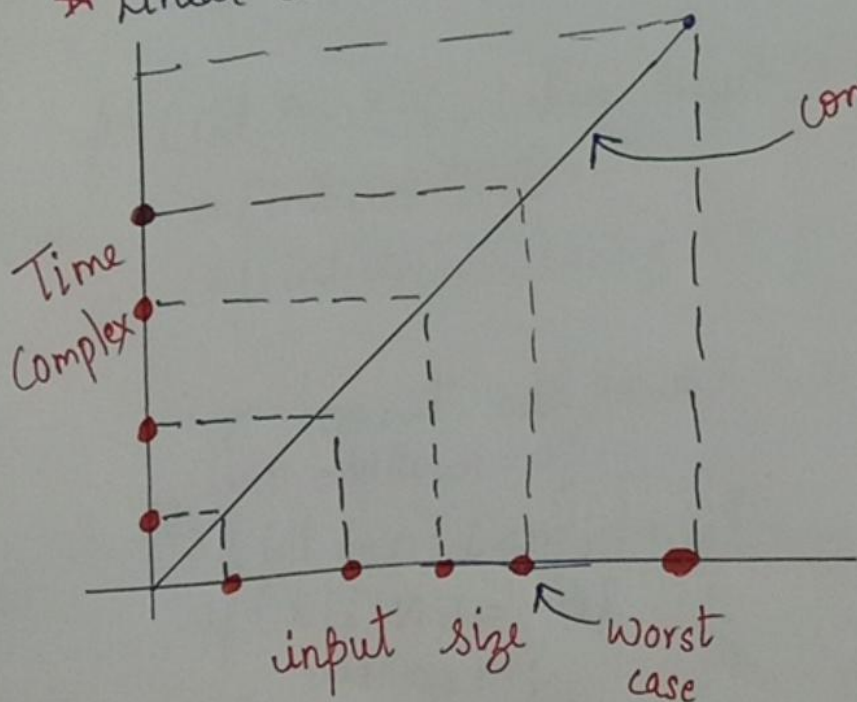 con
Time
Complex
input size
worst
case